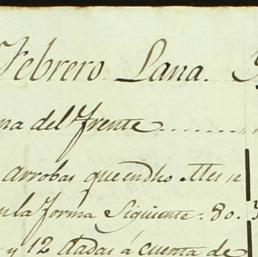 Febrero. Lana.
ma del frente
arrobas que en dho Mes se
en la forma Siguiente: 80.
y 12 dadas á cuenta de